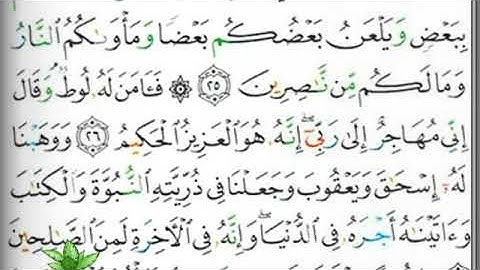 بِبَعْضٍ وَيَلْعَنُ بَعْضُكُم بَعْضًا وَمَأْوَىٰكُمُ ٱلنَّارُ
وَمَا لَكُم مِّن نَّـٰصِرِينَ ٢٥ ۞ فَـَٔامَنَ لَهُۥ لُوطٌ ۘ وَقَالَ
إِنِّى مُهَاجِرٌ إِلَىٰ رَبِّىٓ ۖ إِنَّهُۥ هُوَ ٱلْعَزِيزُ ٱلْحَكِيمُ ٢٦ وَوَهَبْنَا
لَهُۥٓ إِسْحَـٰقَ وَيَعْقُوبَ وَجَعَلْنَا فِى ذُرِّيَّتِهِ ٱلنُّبُوَّةَ وَٱلْكِتَـٰبَ
وَءَاتَيْنَـٰهُ أَجْرَهُۥ فِى ٱلدُّنْيَا ۖ وَإِنَّهُۥ فِى ٱلْـَٔاخِرَةِ لَمِنَ ٱلصَّـٰلِحِينَ